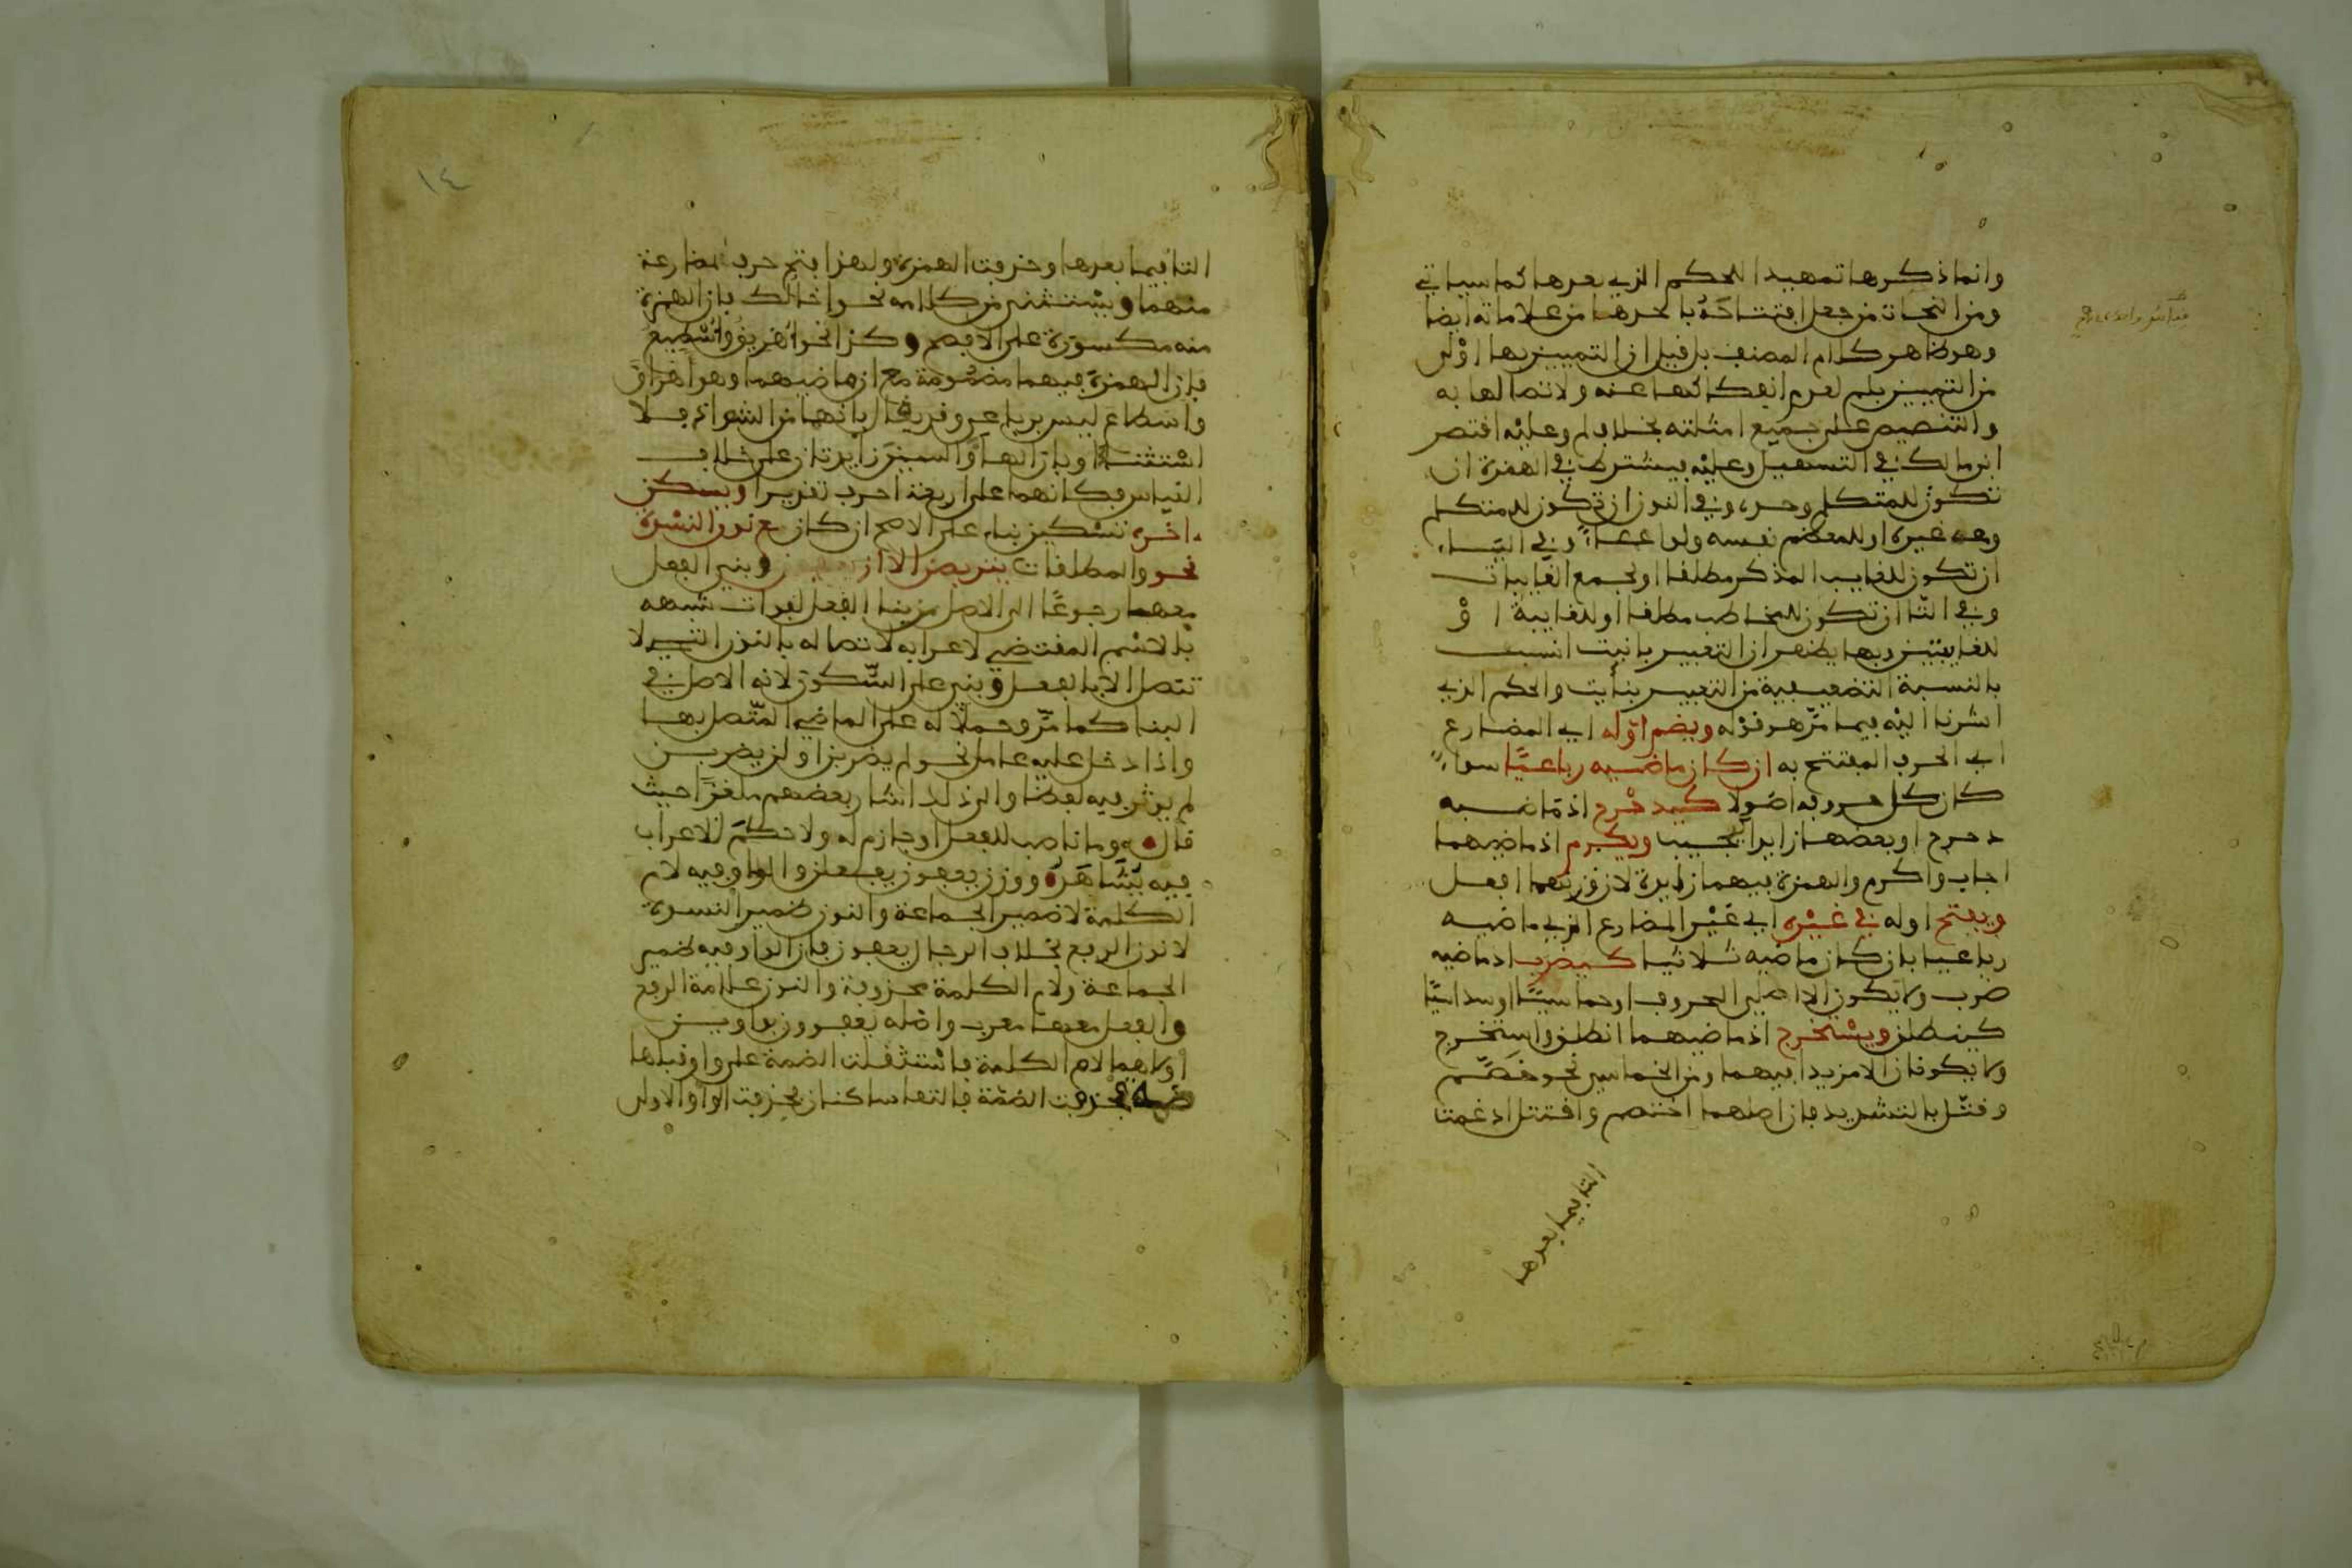 وانما ذكرها تمهيدا للحكم الذي بعدها كما سياتي
ومن النحات من جعل افتتاحه باحدها من علاماته ايضا
وهو ظاهر كلام المصنف بل قيل ان التمييز بها اولى
من التمييز بلم لعدم انفكاكها عنه ولاتصالها به
والتنصيص على جميع امثلته بخلاف لم وعليه اقتصر
ابن مالك في التسهيل وعليه يشترط في الهمزة ان
تكون للمتكلم وحده وفي النون ان تكون للمتكلم
ومعه غيره او للمعظم نفسه ولو ادعاءً وفي الياء
ان تكون للغايب المذكر مطلقا او لجمع الغايبات
وفي التا ان تكون للمخاطب مطلقا او للغايبة اوْ
للغايبتين وبهذا يظهر ان التعبير بانيت انسب
بالنسبة التضعيفية من التعبير بنأيت والحكم الذي
اشرنا اليه فيما مرّ هو قوله ويضم اوّله اي المضارع
اي الحرف المفتتح به ان كان ماضيه رباعيًّا سواءً
كان كل حروفه اصولا كيدحْرج اذ ماضيه
دحرج او بعضها زايدا كيجيب ويكرم اذ ماضيهما
اجاب واكرم والهمزة فيهما زايدة لان وزنهما افعل
ويفتح اوله في غيْره اي غيْر المضارع الذي ماضيه
رباعيا بان كان ماضيه ثلاثيا كيضرب اذ ماضيه
ضرب ولا يكون الا اصلي الحروف او خماسيًّا او سداسيًّا
كينطلق ويسْتخرج اذ ماضيهما انطلق واستخرج
ولا يكونان الا مزيدا فيهما ومن الخماسي نحو خصّم
وقتّل بالتشديد فان اصلهما اختصم واقتتل ادغمت
التا فيما بعدها
١٤
التا فيما بعدها وحذفت الهمزة ولهذا يفتح حرف المضارعة
منهما ويسْتثنى من كلامه نحو اخالك بان الهمزة
منه مكسورة على الافصح وكذا نحو اُهْريق واُسْطيع
فان الهمزة فيهما مضمومة مع ان ماضيهما وهو اهراق
واسطاع ليس برباعي وقد يقال بانهما من الشواذ فلا
اسْتثناء او بان الها والسين زايدتان على خلاف
القياس فكانهما على اربعة احرف تقديرا ويسكن
اخره تسْكين بناء على الاصح ان كان مع نون النسْوة
نحو والمطلقات يتربصن الا ان يعفون وبني الفعل
معها رجوعًا الى الاصل من بنا الفعل لفوات شبهه
بالاسْم المقتضي لاعرابه لاتصاله بالنون التي لا
تتصل الا بالفعل وبني على السّكون لانه الاصل في
البنا كما مرّ وحملا له على الماضي المتّصل بها
واذا دخل عليه عامل نحو لم يضربن او لن يضربن
لم يوثر فيه لفظا والى ذلك اشار بعضهم ملغزا حيث
قال وما ناصب للفعل او جازم له ولا حكمَ للاعراب
فيه يُشَاهَدُ ووزن يعفون يفعلن والواو فيه لام
الكلمة لا ضمير الجماعة والنون ضمير النسوة
لا نون الرفع بخلاف الرجال يعفون فان الواو فيه ضمير
الجماعة ولام الكلمة محذوفة والنون علامة الرفع
والفعل معها معرب واصْله يعفوون بواوين
اولاهما لام الكلمة فاسْتثقلت الضمة على واو قبلها
ضمة فحذفت الضمّة فالتقا ساكنان فحذفت الواو الاولى